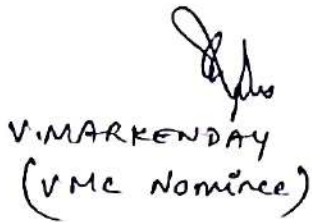 V.MARKENDAY
(VMC Nominee)